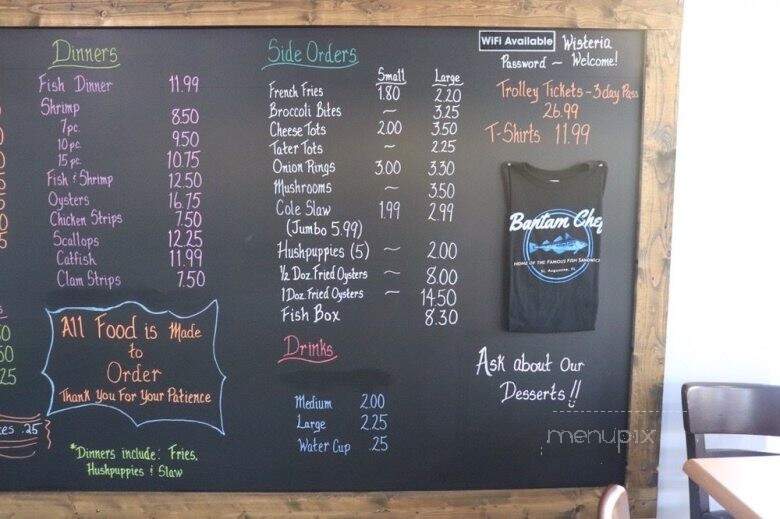 Dinners
Fish Dinner 11.99
Shrimp
7pc. 8.50
10pc. 9.50
15pc. 10.75
Fish & Shrimp 12.50
Oysters 16.75
Chicken Strips 7.50
Scallops 12.25
Catfish 11.99
Clam Strips 7.50
All Food is Made
to
Order
Thank You For Your Patience
*Dinners include: Fries,
Hushpuppies & Slaw
.25
Side Orders
Small Large
French Fries 1.80 2.20
Broccoli Bites ~ 3.25
Cheese Tots 2.00 3.50
Tater Tots ~ 2.25
Onion Rings 3.00 3.30
Mushrooms ~ 3.50
Cole Slaw 1.99 2.99
(Jumbo 5.99)
Hushpuppies (5) ~ 2.00
1/2 Doz Fried Oysters ~ 8.00
1 Doz Fried Oysters ~ 14.50
Fish Box 8.30
Drinks
Medium 2.00
Large 2.25
Water Cup .25
WiFi Available Wisteria
Password ~ Welcome!
Trolley Tickets - 3 day Pass
26.99
T-Shirts 11.99
Bantam Chef
HOME OF THE FAMOUS FISH SANDWICH
St. Augustine, FL
Ask about Our
Desserts!!
menupix